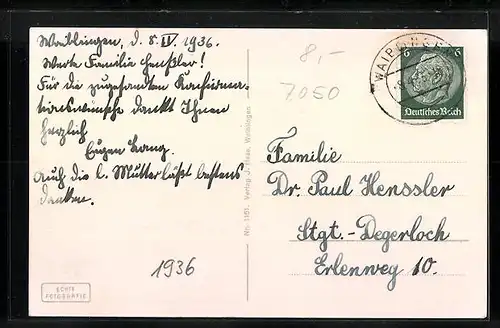 Waiblingen, d. 8. IV. 1936.
Werte Familie Henßler!
Für die zugesandten Konfirma-
tionswünsche dankt Ihnen
herzlich
Eugen Lang.
Auch die l. Mutter läßt bestens
danken.
1936
ECHTE
FOTOGRAFIE
No. 1151. Verlag J. Hess, Waiblingen
8,-
7050
WAIBLINGEN
6 6
Deutsches Reich
Familie
Dr. Paul Henssler
Stgt.-Degerloch
Erlenweg 10.